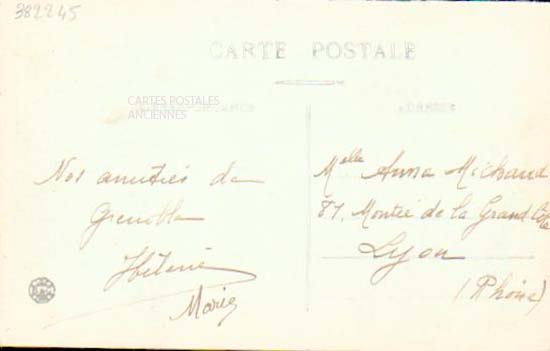 382245
CARTE POSTALE
CARTES POSTALES
ANCIENNES
CORRESPONDANCE
ADRESSE
Nos amitiés de
Grenoble
Hélène
Marie
Melle Anna Michaud
87, Montée de la Grand Côte
Lyon
(Rhône)